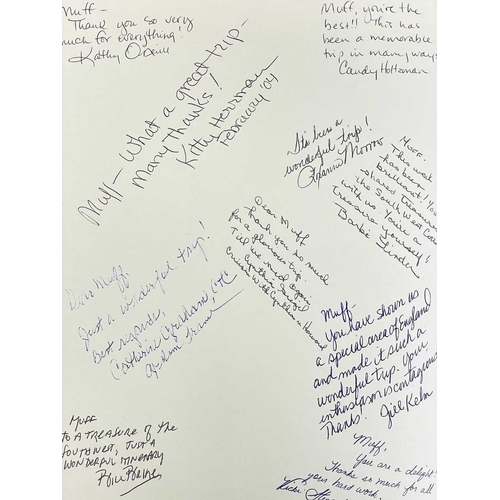 Muff –
Thank you so very
much for everything!
Kathy
Muff, you're the
best!! This has
been a memorable
trip in many ways
Candy Holtzman
Muff – What a great trip –
Many Thanks!
Kitty Herrman
February '04
It's been a
wonderful trip!
Morrow
Muff.
This week
has been
brilliant! You
shared treasures
the South West Coast
with us. You're a
treasure yourself!
Barbie
Dear Muff
Thank you so much
for a glorious trip
Till we meet again
Dear Muff.
Just a wonderful trip!
Best regards,
Catherine
Muff –
You have shown us
a special area of England
and made it such a
wonderful trip. Your
enthusiasm is contagious
Thanks. Jill Kelm
Muff
To a treasure of the
southwest, just a
wonderful itinerary
Muff,
You are a delight!
Thanks so much for all
your hard work.